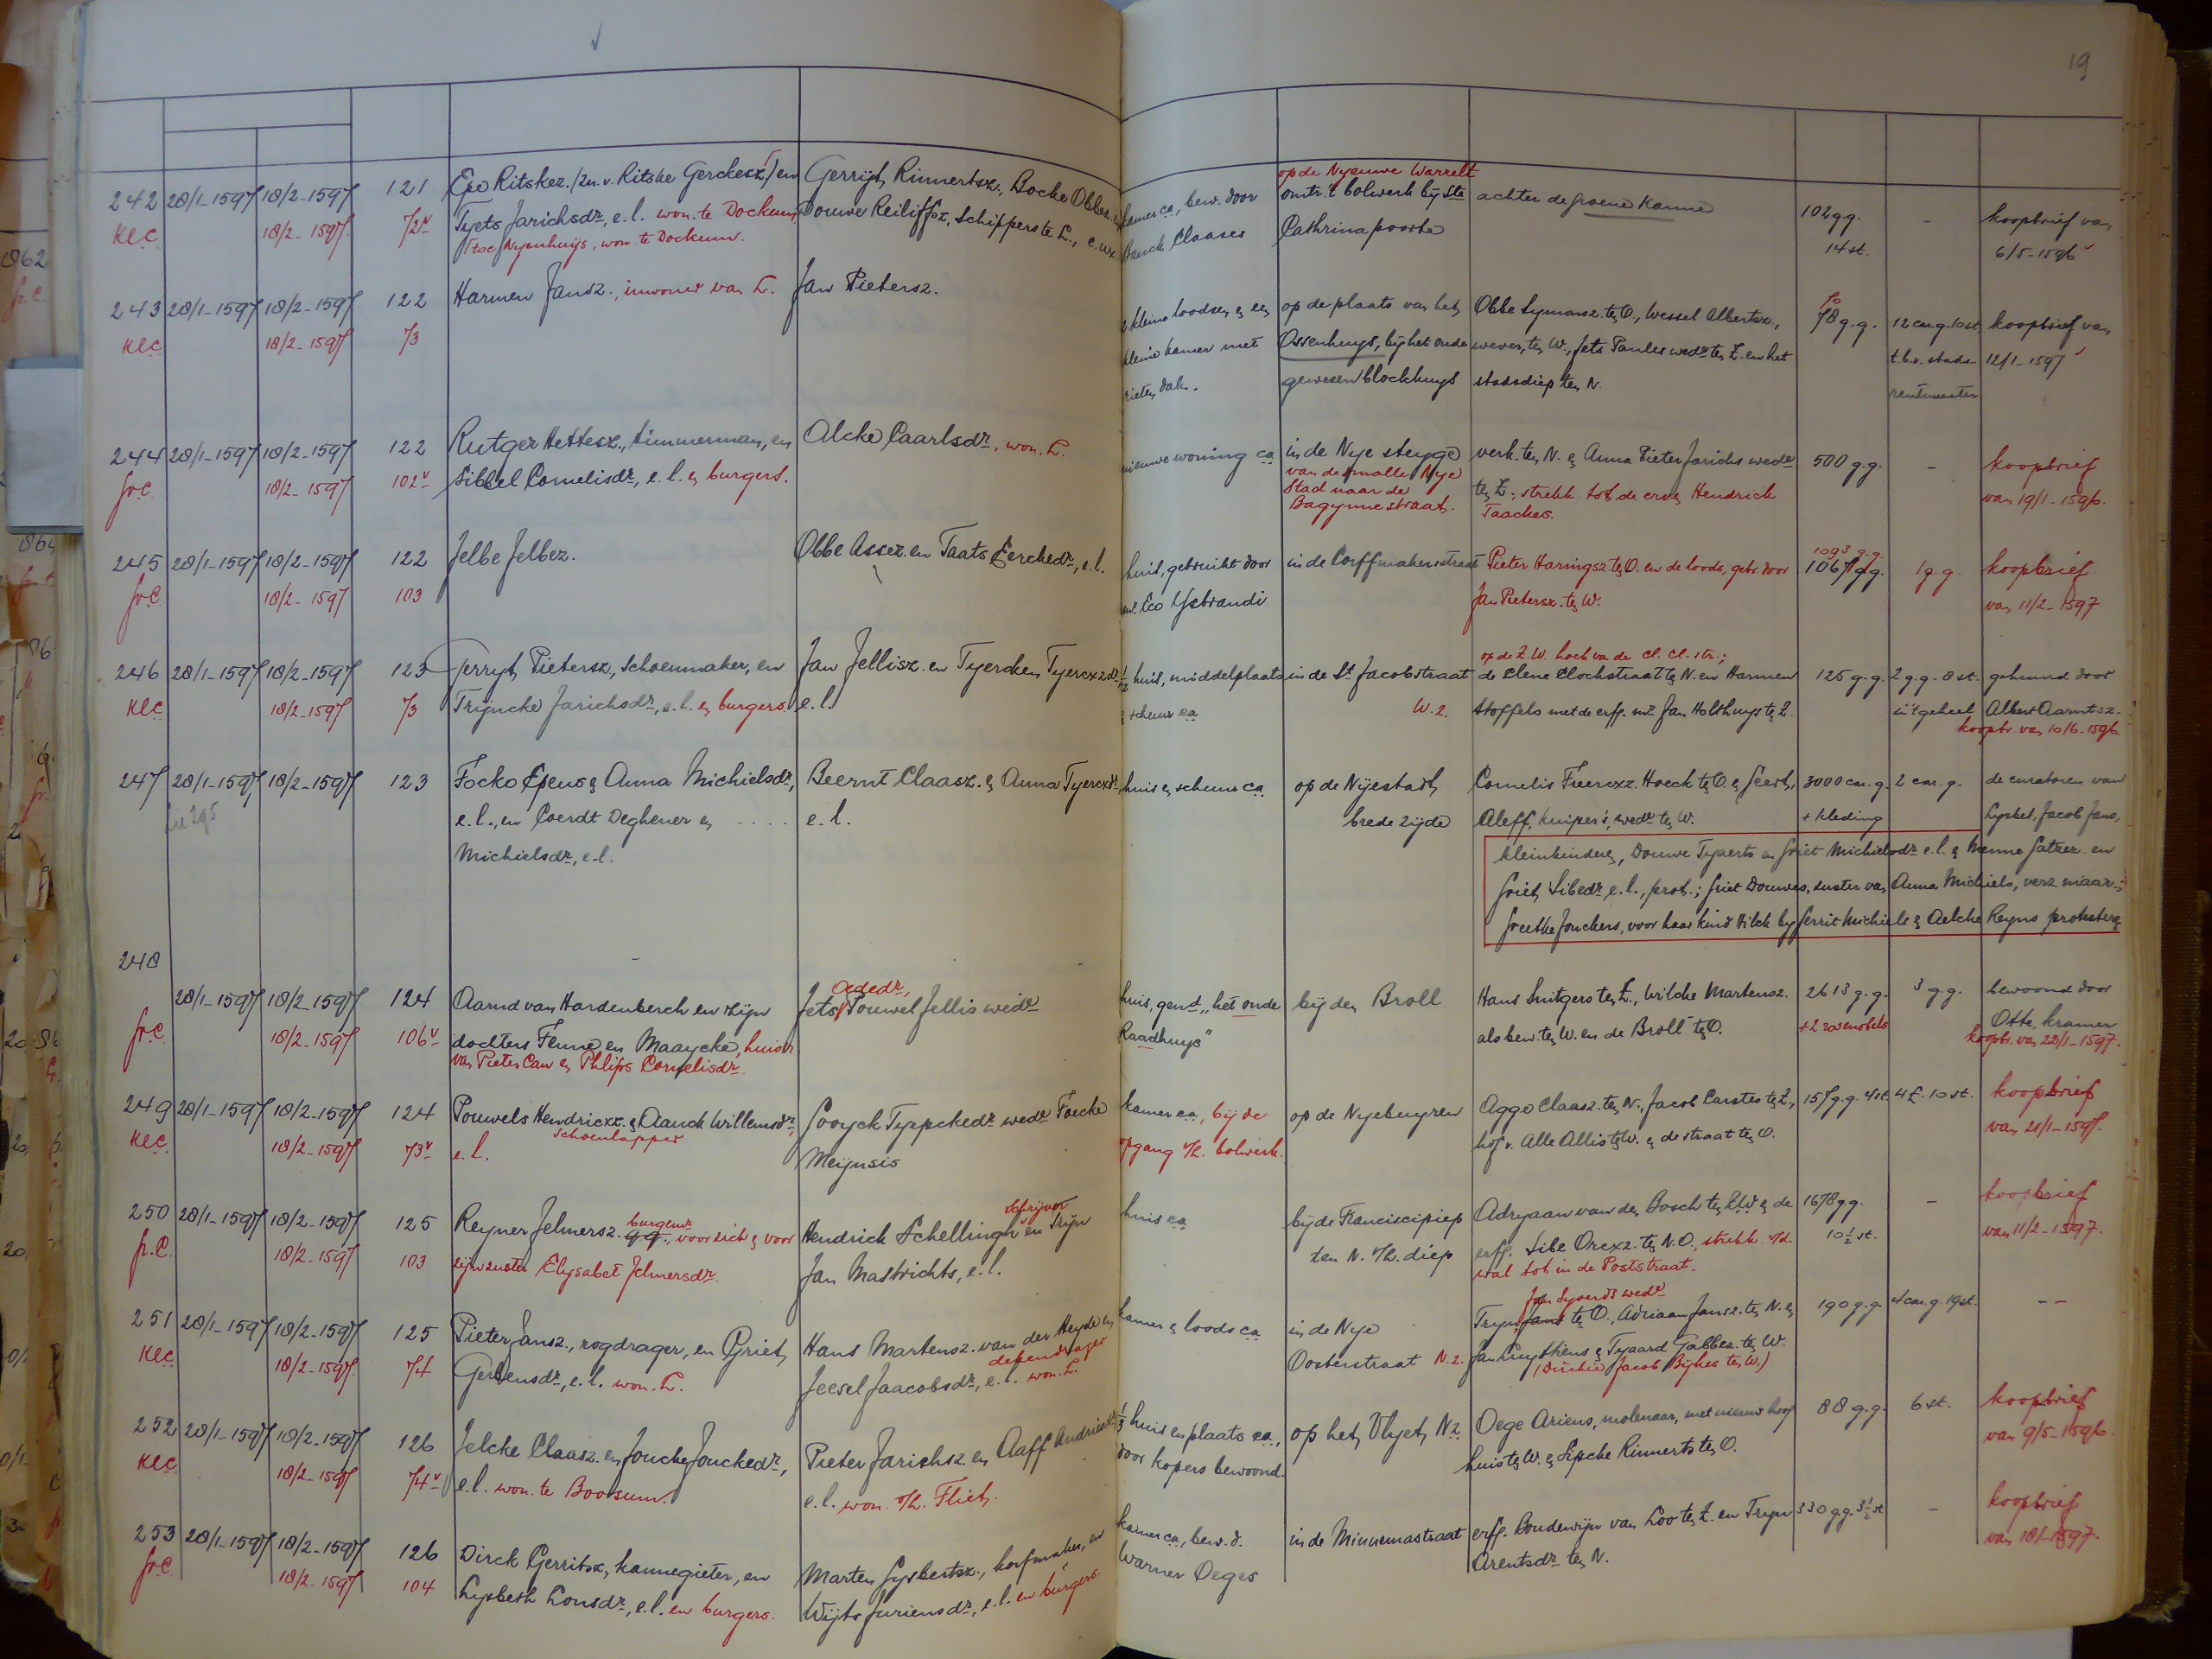 19
242 28/1-1597 18/2-1597 121 Epo Ritskez. (zn. v. Ritske Gerckesz.) en Gerryt Rinnertsz., Bocke Obbez. en kamer ca, bew. door op de Nyeuwe Warrelt
omtr. 't bolwerk bij Ste achter de groene Kanne 102 g.g. - koopbrief van
klc. 18/2-1597 72v Tyets Jarichsdr, e.l. won. te Dockum, Douwe Reiliffsz, schippers te L., c. ux. Bauck Claases Cathrinapoorte 14 st. 6/5-1596
Nyenhuys, won. te Dockum.
243 28/1-1597 18/2-1597 122 Harmen Jansz., inwoner van L. Jan Pietersz. 2 kleine loodsen & een op de plaats van het Obbe Symansz. ten O., Wessel Albertsz., 78 g.g. 12 car.g. 10 st. koopbrief van
klc. 18/2-1597 73 kleine kamer met Ossenhuys, bij het oude wever, ten W., Jets Paules wedr ten Z. en het t.b.v. stads- 12/1-1597
rieten dak. gewesen blockhuys stadsdiep ten N. rentmeester
244 28/1-1597 18/2-1597 122 Rutger Hettesz., timmerman, en Alcke Caarlsdr, won. L. nieuwe woning ca in de Nye stegge verk. ten N. & Anna Pieter Jarichs wedr 500 g.g. - koopbrief
gr.C. 18/2-1597 102v Sibbel Cornelisdr, e.l. & burgers. van de smalle Nye ten Z.; strekk. tot de erve Hendrick van 19/1-1596.
Stad naar de Taackes.
Bagynnestraat.
245 28/1-1597 18/2-1597 122 Jelbe Jelbez. Obbe Assez. en Taats Eerckedr, e.l. huis, gebruikt door in de Corffmakersstraat Pieter Haringsz ten O. en de loods, gebr. door 1093 g.g.
1067 g.g. 1 g.g. koopbrief
gr.C. 18/2-1597 103 mr. Eco Ysbrandi Jan Pietersz. ten W. van 11/2-1597
op de Z.W. hoek va de Cl. Cl. str.;
246 28/1-1597 18/2-1597 123 Gerryt Pietersz, schoenmaker, en Jan Jellisz. en Tyercken Tyercxzdr. 1/2 huis, middelplaats in de St Jacobstraat de Clene Clockstraat ten N. en Harmen 125 g.g. 2 g.g. 8 st. gehuurd door
klc. 18/2-1597 73 Tryncke Jarichsdr, e.l. & burgers e.l. & schuur ca W.z. Stoffels met de erfg. mr Jan Holthuys ten Z. in 't geheel Albert Aarntsz.
koopbr. van 10/6-1596
247 28/1-1597 18/2-1597 123 Focko Epeus & Anna Michielsdr, Beernt Claasz. & Anna Tyercxdr. huis & schuur ca op de Nijestadt, Cornelis Freercxz. Hoeck ten O. & Geert, 3000 car.g. 2 car.g. de curatoren van
zie 295 e.l., en Coerdt Deghener en .... e.l. brede zijde Aleff, kuiper's, wedr ten W. + kleding Lysbet, Jacob Jans,
Michielsdr, e.l. kleinkinderen, Douwe Tyaerts en Griet Michielsdr e.l. & Menne Gatzez. en
Griet Sibedr e.l., prot.; Griet Douwes, zuster van Anna Michiels, verz. niaar.;
Greetke Jonckers, voor haar kind Rilck by Gerrit Michiels & Aelcke Reyns protesteren
248
28/1-1597 18/2-1597 124 Aarnd van Hardenberch en zijn Jets Oededr, Pouwel Jellis wedr huis, gend. "het oude bij den Broll Hans Luitgers ten Z., Wilcke Martensz. 2613 g.g. 3 g.g. bewoond door
gr.C. 18/2-1597 106v dochters Fenne en Maaycke, huisvr Raadhuys" als bew. ten W. en de Broll ten O. + 2 rosenobels Otte, kramer
van Pieter Cau & Philips Cornelisdr. koopbr. van 22/1-1597.
249 28/1-1597 18/2-1597 124 Pouwels Hendricxz. & Aanck Willemsdr, Gooyck Typpckedr wedr Foecke kamer ca, bij de op de Nyebuyren Agge Claasz. ten N., Jacob Carstes ten Z., 157 g.g. 4 st. 4 £. 10 st. koopbrief
schoenlapper
klc. 18/2-1597 73v e.l. Meynsis opgang v/h. bolwerk. hof v. Alle Allis ten W. & de straat ten O. van 21/1-1597.
250 28/1-1597 18/2-1597 125 Reyner Jelmersz. burgemr, voor zich & voor Hendrick Schellingh schrijver en Tryn huis ca bij de Franciscipiep Adryaan van den Bosch ten Z.W & de 1678 g.g. - koopbrief
gr.C. 18/2-1597 103 zijn zuster Elysabet Jelmersdr. Jan Mastrichts, e.l. ten N. v/h. diep erfg. Sibe Orcxz. ten N.O., strekk. v/d. 10 1/2 st. van 11/2-1597.
wal tot in de Poststraat.
Jan Syoerds wedr
251 28/1-1597 18/2-1597 125 Pieter Jansz., rogdrager, en Griet, Hans Martensz. van der Heyde en kamer & loods ca in de Nye Tryn Jans ten O., Adriaan Jansz. ten N. & 190 g.g. 4 car.g. 19 st. --
klc. 18/2-1597 74 Gerbensdr, e.l. won. L. Jeesel Jaacobsdr, e.l. won. L. Oosterstraat N.z. Jan Luythiens & Tyaard Gabbez. ten W.
252 28/1-1597 18/2-1597 126 Jelcke Claasz. en Joucke Jouckedr, Pieter Jarichsz en Aaff Andriesdr 1/3 huis en plaats ca, op het Vlyet, Nz. Oege Ariens, molenaar, met nieuw hoog 88 g.g. 6 st. koopbrief
klc. 18/2-1597 74v e.l. won. te Boosum. e.l. won. v/h. Fliet. door kopers bewoond. huis ten W. & Sipcke Rinnerts ten O. van 9/5-1596.
253 28/1-1597 18/2-1597 126 Dirck Gerritsz, kannegieter, en Marten Gysbertsz., korfmaker, en kamer ca, bew. d. in de Minnemastraat erfg. Boudewijn van Loo ten Z. en Tryn 330 g.g. 3 1/2 st. - koopbrief
gr.C. 18/2-1597 104 Lysbeth Lonsdr, e.l. en burgers. Wijts Juriensdr, e.l. en burgers. Warner Oeges Arentsdr ten N. van 18/1-1597.